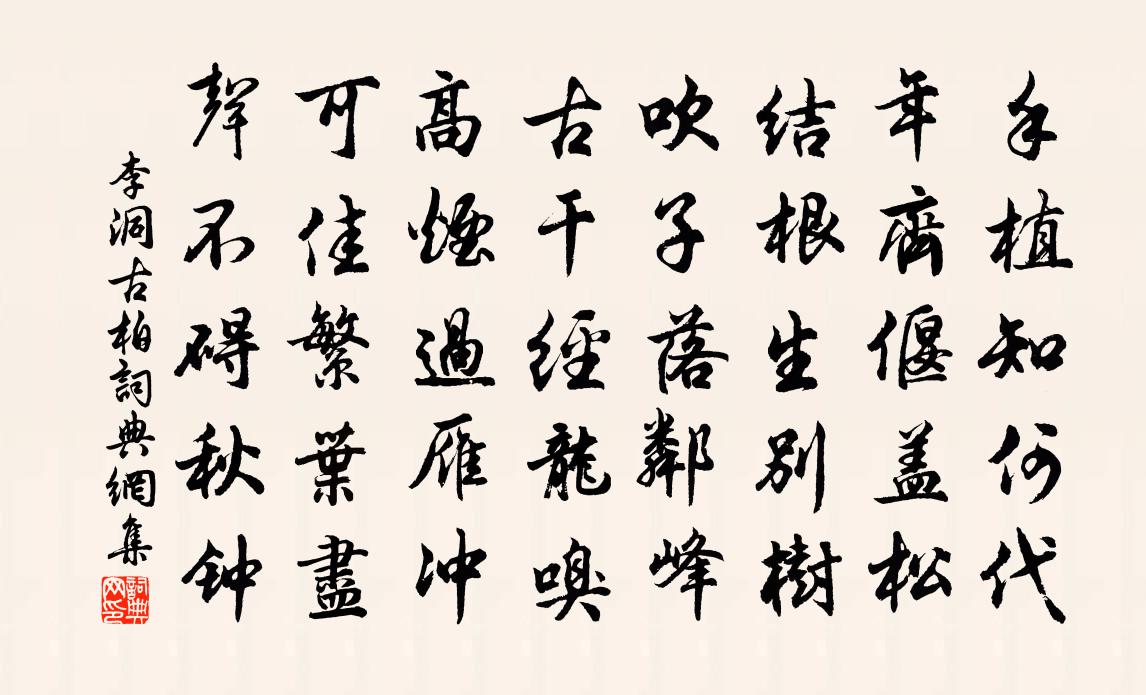 手植知何代
年齊偃盖松
结根生别樹
吹子落鄰峰
古干經龍嗅
高煙過雁冲
可佳繁葉盡
聲不碍秋钟
李洞古柏詞典網集
詞典网印